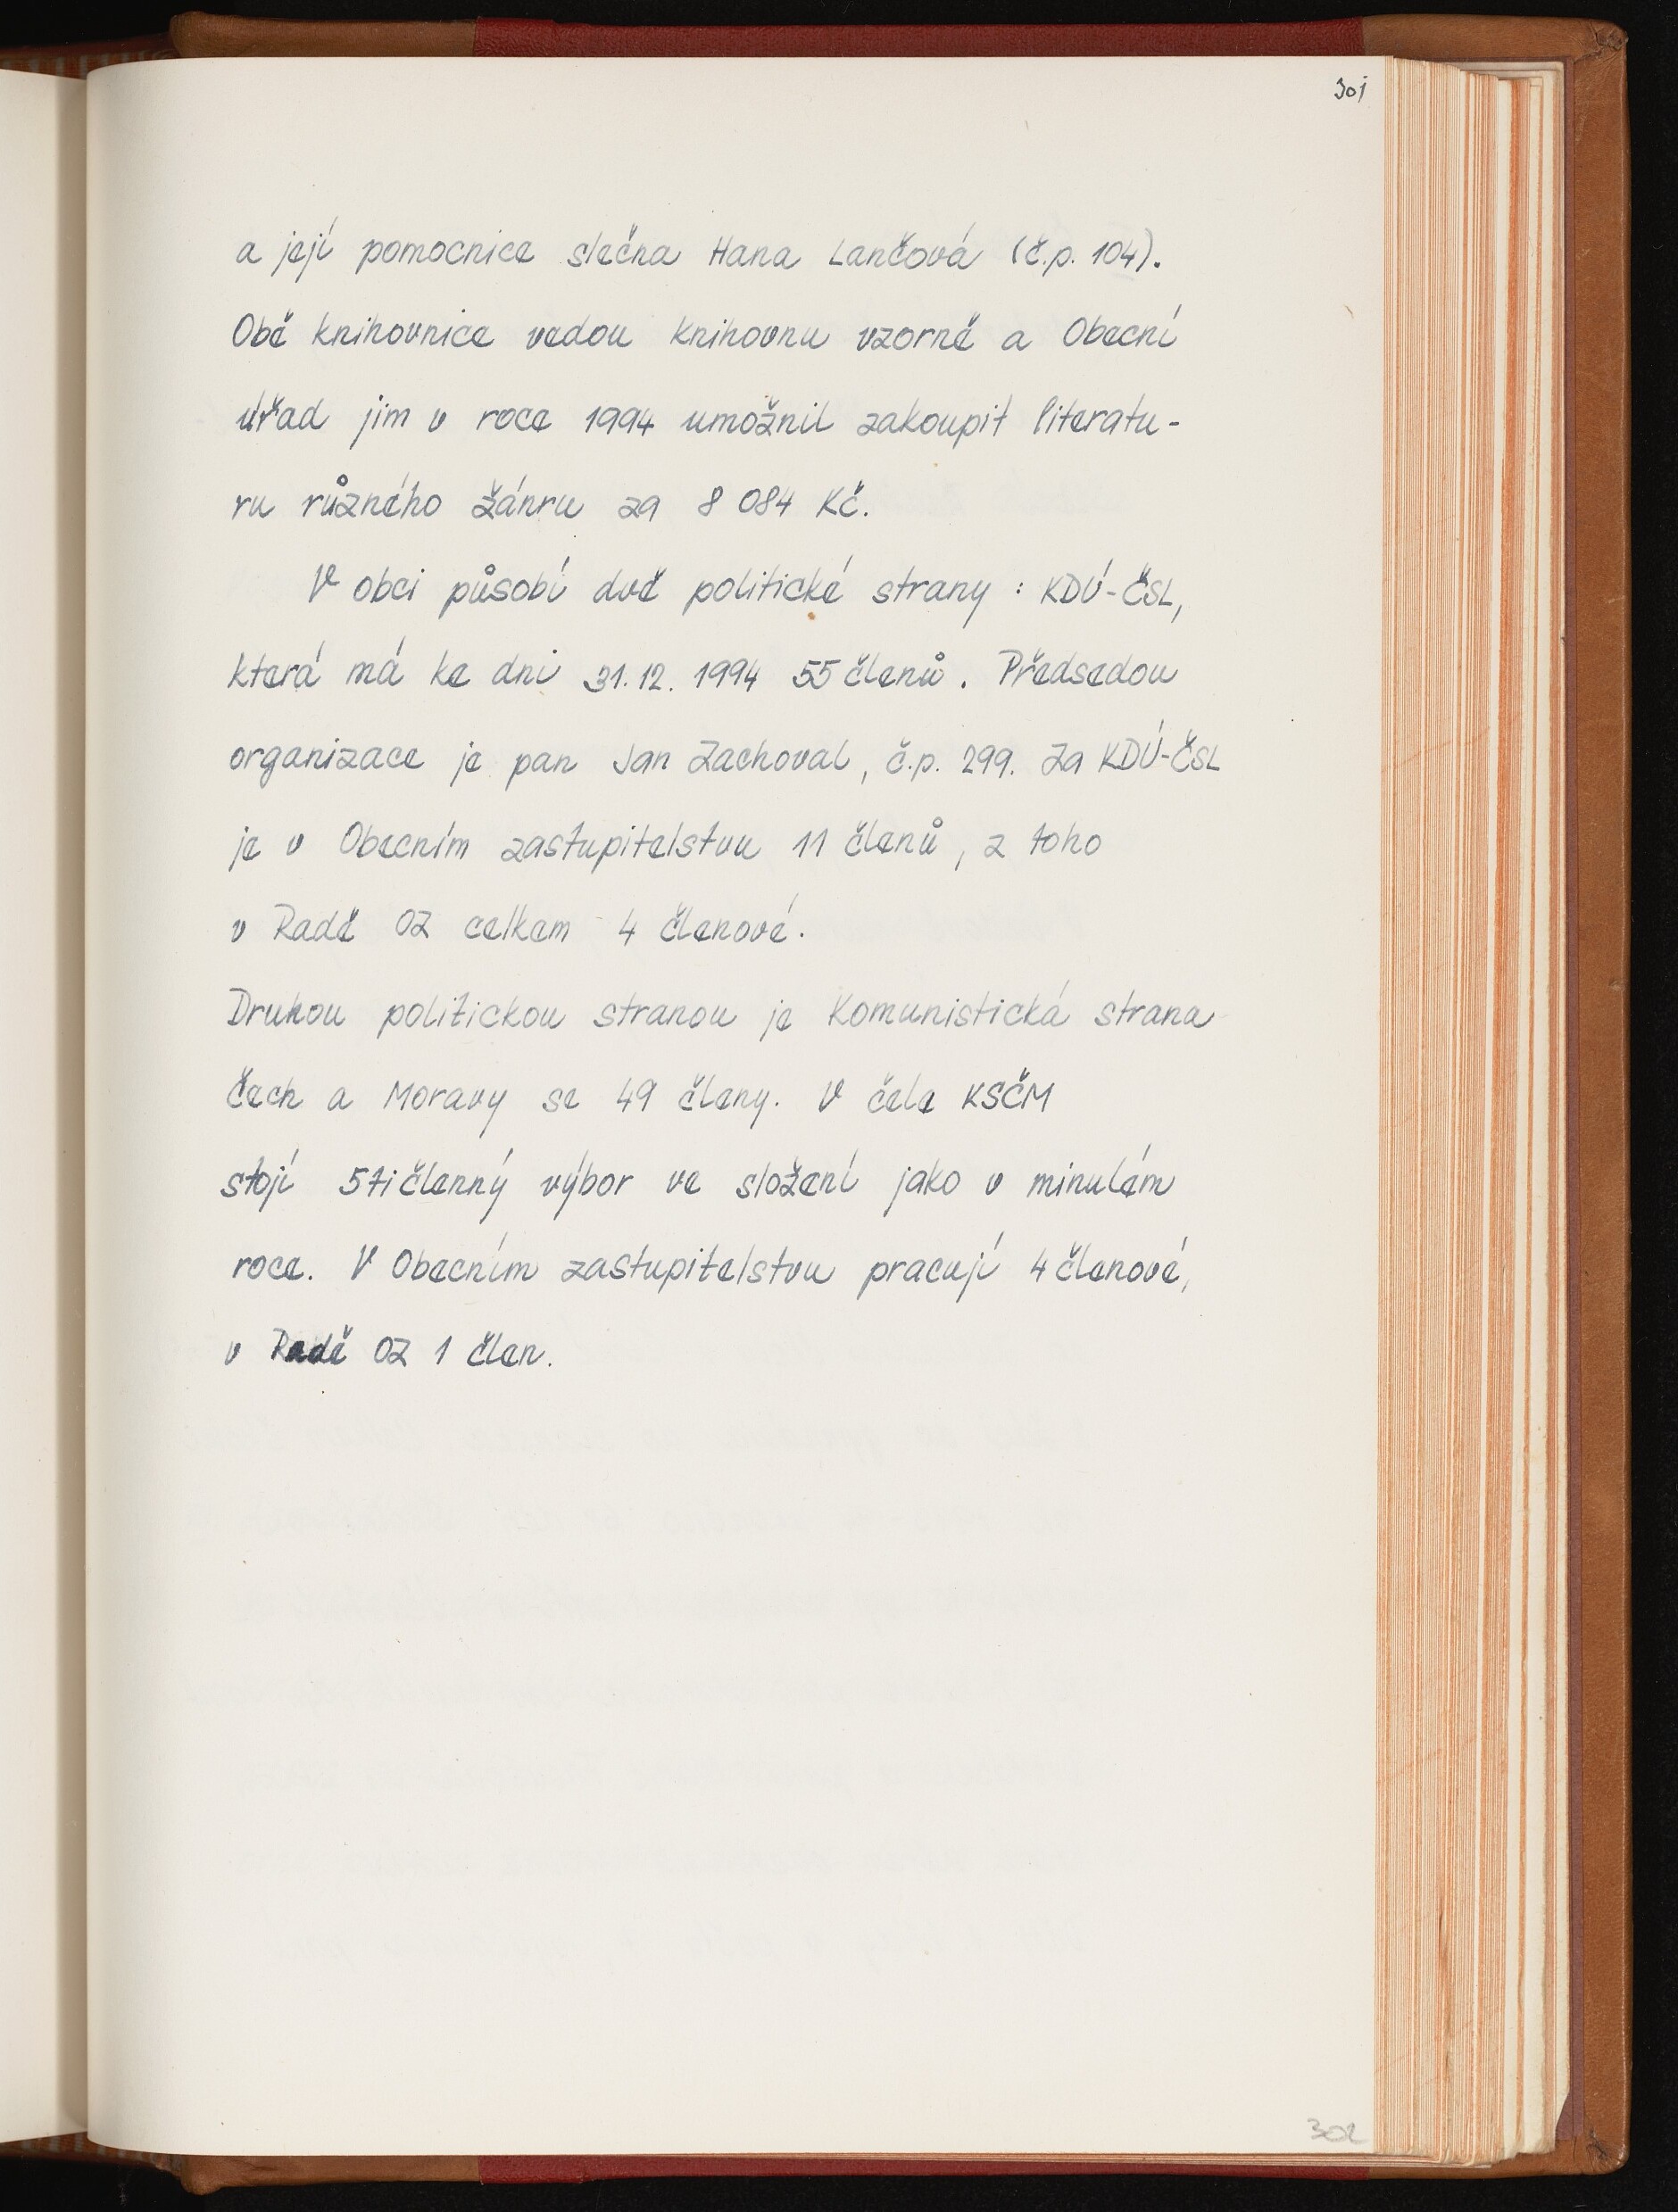 301
a její pomocnice slečna Hana Lančová (č.p. 104).
Obě knihovnice vedou knihovnu vzorně a Obecní
úřad jim v roce 1994 umožnil zakoupit literatu-
ru různého žánru za 8 084 Kč.
V obci působí dvě politické strany : KDÚ-ČSL,
která má ke dni 31. 12. 1994 55 členů. Předsedou
organizace je pan Jan Zachoval, č.p. 299. Za KDÚ-ČSL
je v Obecním zastupitelstvu 11 členů, z toho
v Radě OZ celkem 4 členové.
Druhou politickou stranou je Komunistická strana
Čech a Moravy se 49 členy. V čele KSČM
stojí 5tičlenný výbor ve složení jako v minulém
roce. V Obecním zastupitelstvu pracují 4 členové,
v Radě OZ 1 člen.
302